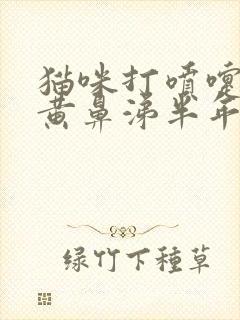 猫咪打喷嚏
黄鼻涕半年
绿竹下种草